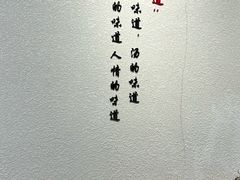 道
味道，汤的味道
的味道人情的味道